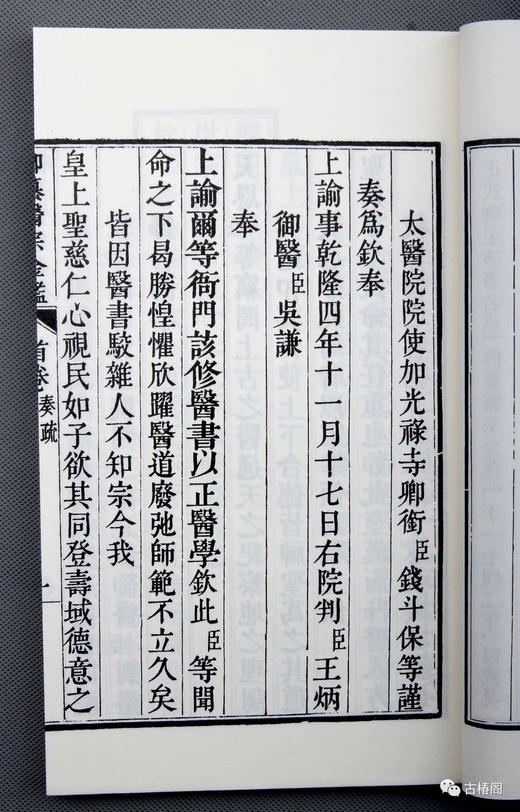 太醫院院使加光祿寺卿銜臣錢斗保等謹
奏爲欽奉
上諭事乾隆四年十一月十七日右院判臣王炳
御醫臣吳謙
奉
上諭爾等衙門該修醫書以正醫學欽此臣等聞
命之下曷勝惶懼欣躍醫道廢弛師範不立久矣
皆因醫書駁雜人不知宗今我
皇上聖慈仁心視民如子欲其同登壽域德意之
御纂醫宗金鑑
首卷 奏疏
一
古椿阁